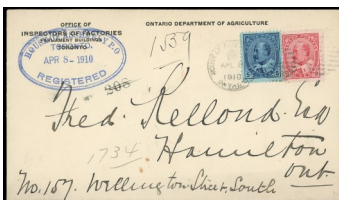 OFFICE OF
INSPECTORS OF FACTORIES
PARLIAMENT BUILDINGS
TORONTO
ONTARIO DEPARTMENT OF AGRICULTURE
APR 8 - 1910
REGISTERED
1539
208
1910
Fred. Kellond. Esq
1734
Hamilton
Ont.
No. 157. Wellington Street, South